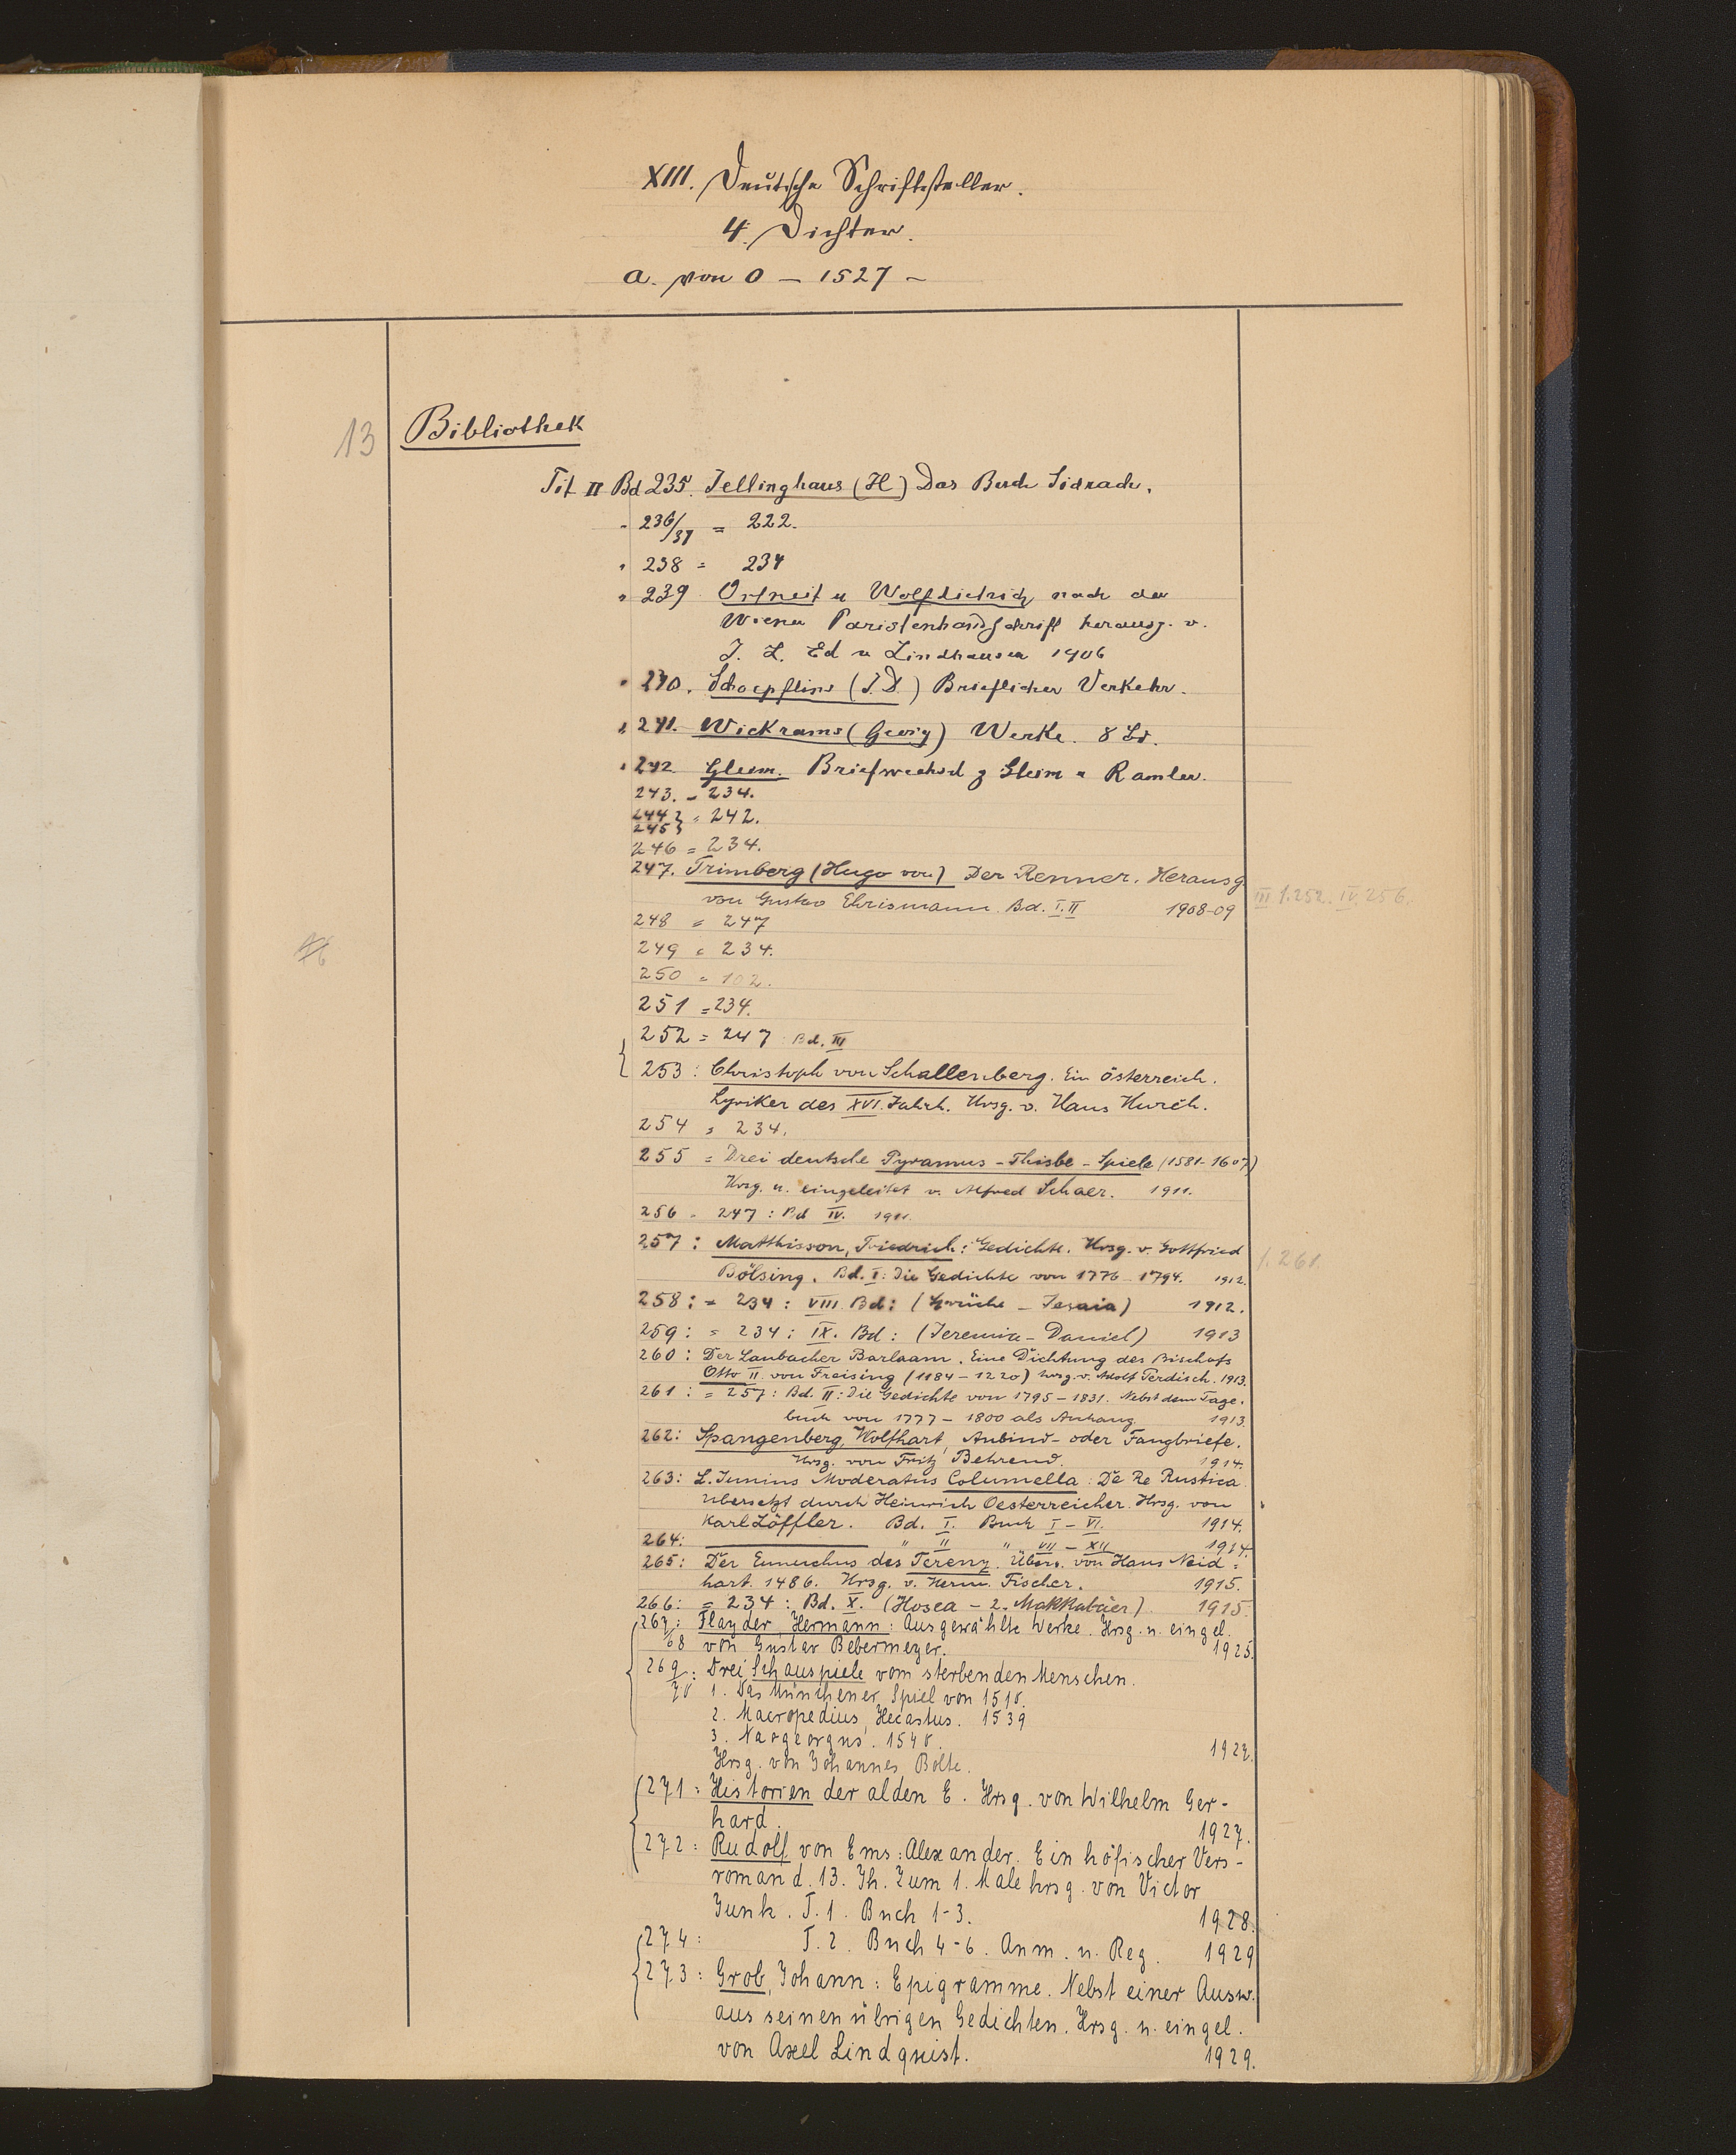 XIII. Deutsche Schriftsteller.
4. Dichter.
a. von 0 – 1527 –
13 Bibliothek
Tit II Bd 235. Jellinghaus (H) Das Buch Sidrach.
" 236/37 = 222.
" 238 = 234
" 239 Ortneit u Wolfdietrich nach der
Wiener Piaristenhandschrift herausg. v.
J. L. Ed v Lindhausen 1906
" 240. Schoepflins (J. D.) Brieflicher Verkehr.
" 241. Wickrams (Georg) Werke. 8 Bd.
" 242 Gleim. Briefwechsel z Gleim u Ramler.
243. = 234.
244 } = 242.
245 }
246 = 234.
247. Trimberg (Hugo von) Der Renner. Herausg
von Gustav Ehrismann. Bd. I. II 1908-09
III f. 252. IV. 256.
248 = 247
249 = 234.
250 = 102.
251 = 234.
252 = 247 Bd. III
253: Christoph von Schallenberg. Ein österreich.
Lyriker des XVI. Jahrh. Hrsg. v. Hans Hurch.
254 = 234.
255 = Drei deutsche Pyramus-Thisbe-Spiele (1581-1607)
Hrsg. u. eingeleitet v. Alfred Schaer. 1911.
256 = 247: Bd IV. 1911.
257: Matthisson, Friedrich: Gedichte. Hrsg. v. Gottfried
f. 261.
Bölsing. Bd. I: Die Gedichte von 1776-1794. 1912.
258: = 234: VIII. Bd: (Sprüche – Jesaia) 1912.
259: = 234: IX. Bd: (Jeremia – Daniel) 1913
260: Der Laubacher Barlaam. Eine Dichtung des Bischofs
Otto II. von Freising (1184-1220) hrsg. v. Adolf Perdisch. 1913.
261: = 257: Bd. II: Die Gedichte von 1795-1831. Nebst dem Tage-
buch von 1777-1800 als Anhang. 1913.
262: Spangenberg, Wolfhart, Anbind- oder Fangbriefe.
Hrsg. von Fritz Behrend. 1914.
263: L. Junius Moderatus Columella: De Re Rustica
übersetzt durch Heinrich Oesterreicher. Hrsg. von
Karl Löffler. Bd. I. Buch I-VI. 1914.
264: " II " VII-XII 1914.
265: Der Eunuchus des Terenz. Übers. von Hans Neid=
hart. 1486. Hrsg. v. Herm. Fischer. 1915.
266: = 234: Bd. X. (Hosea – 2. Makkabäer) 1915.
267: Flayder, Hermann: Ausgewählte Werke. Hrsg. u. eingel.
/68 von Gustav Bebermeyer. 1925.
269: Drei Schauspiele vom sterbenden Menschen.
/70 1. Das Münchener Spiel von 1510.
2. Macropedius, Hecastus. 1539
3. Naogeorgus. 1540.
1927.
Hrsg. von Johannes Bolte.
271: Historien der alden E. Hrsg. von Wilhelm Ger-
hard. 1927.
272: Rudolf von Ems: Alexander. Ein höfischer Vers-
roman d. 13. Jh. Zum 1. Male hrsg. von Victor
Junk. T. 1. Buch 1-3. 1928.
274: T. 2. Buch 4-6. Anm. u. Reg. 1929
273: Grob, Johann: Epigramme. Nebst einer Ausw.
aus seinen übrigen Gedichten. Hrsg. u. eingel.
von Axel Lindqvist. 1929.